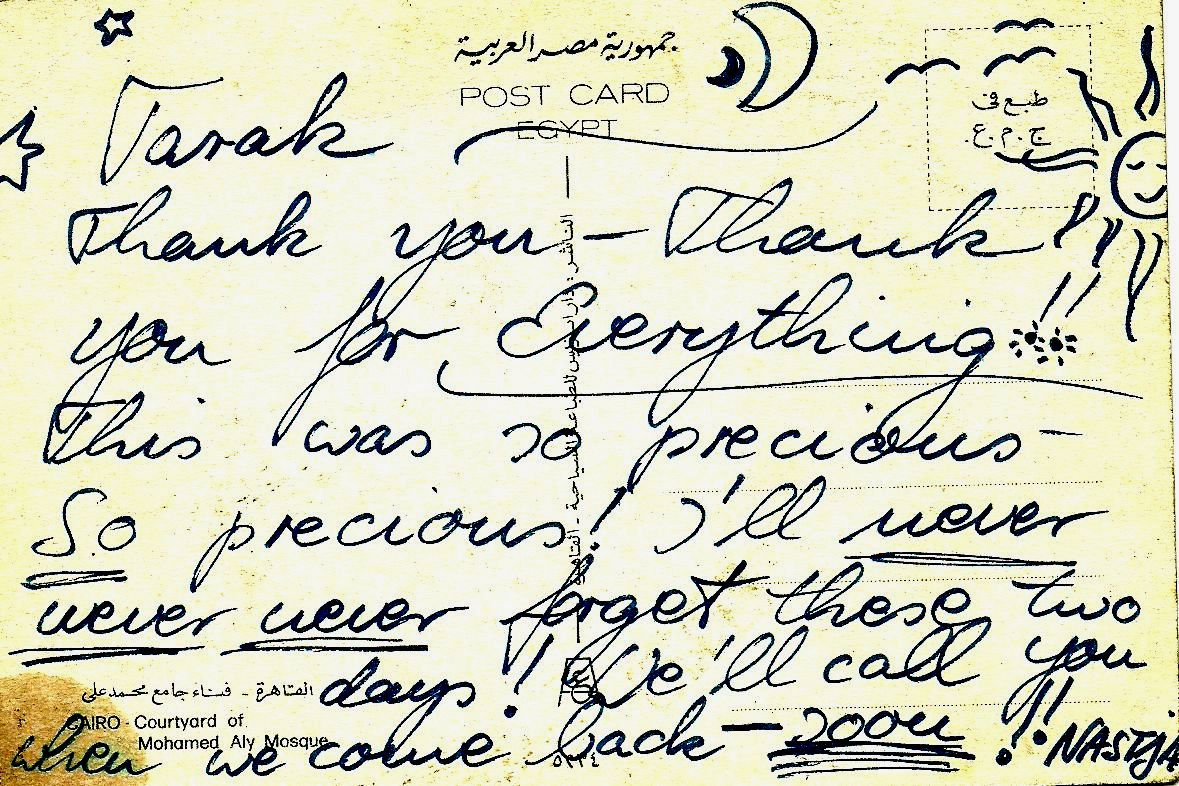 جمهورية مصر العربية
POST CARD
EGYPT
طبع فى
ج.م.ع.
Tarak
Thank you – Thank
you for Everything!!
This was so precious –
So precious! I'll never
never never forget these two
days! We'll call you
when we come back – soon!!
NASTJA
القاهرة - فناء جامع محمد على
CAIRO - Courtyard of
Mohamed Aly Mosque